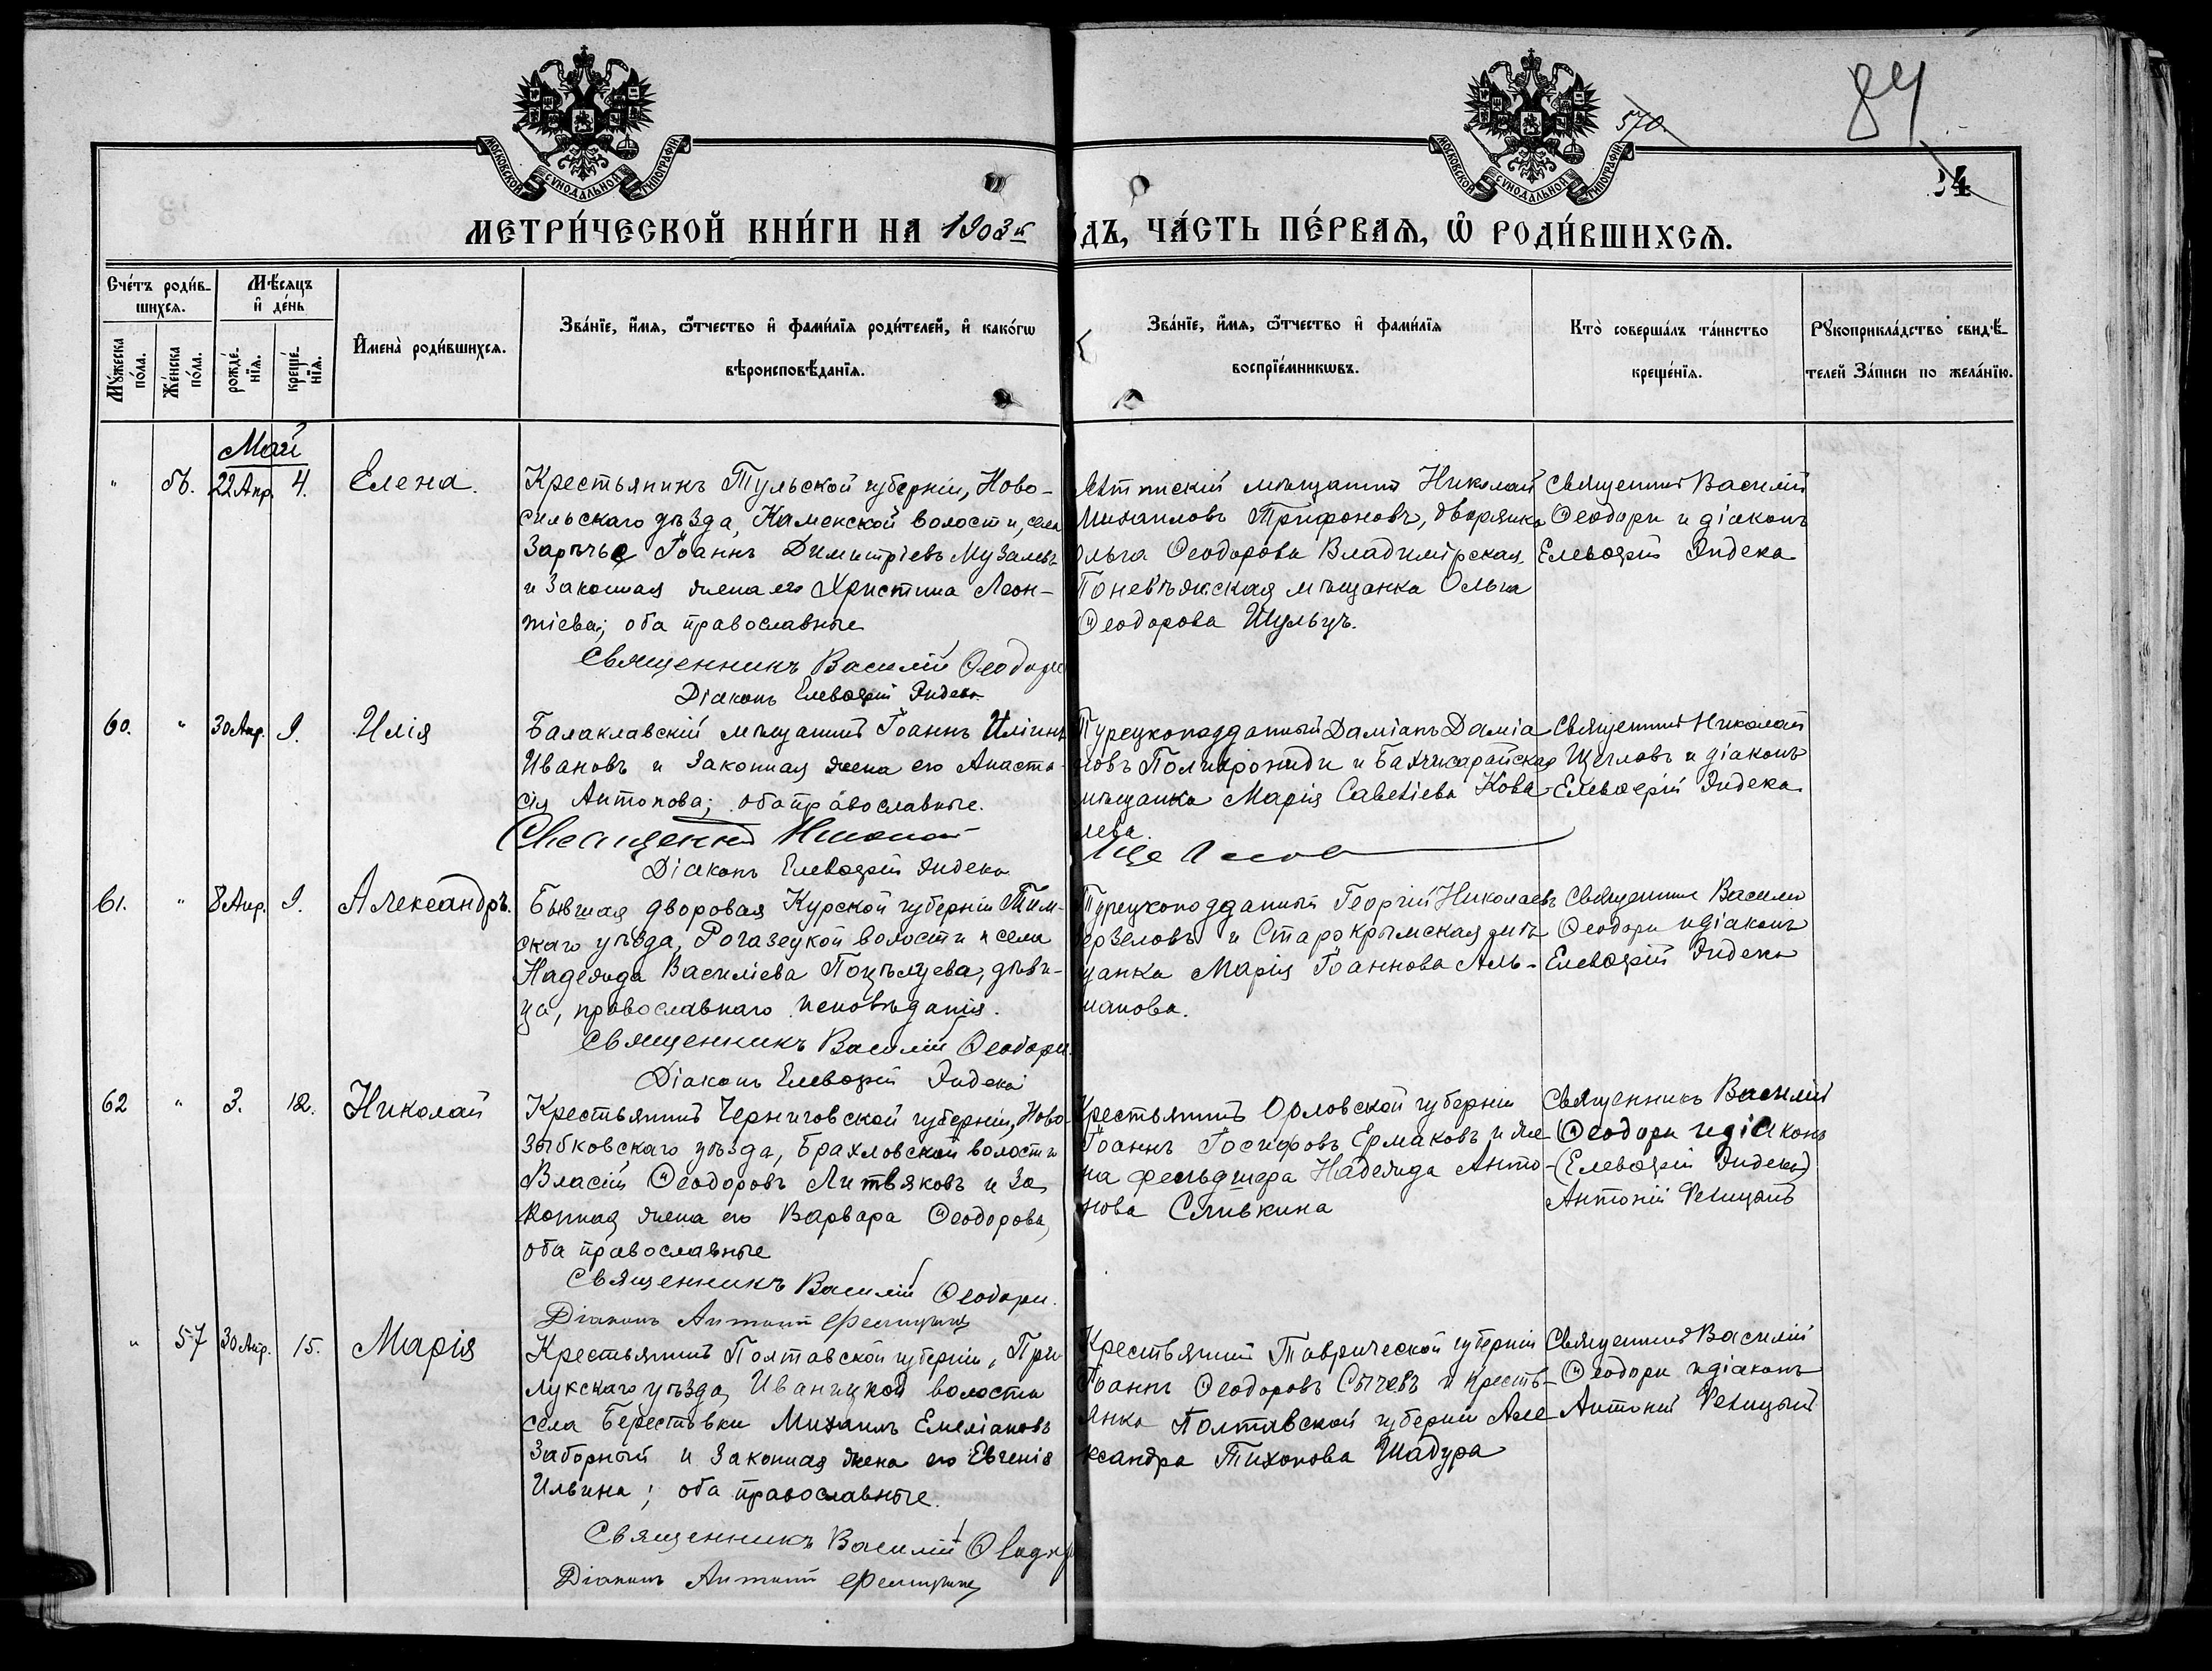 84
570
24
МОСКОВСКОЙ СУНОДАЛЬНОЙ ТИПОГРАФІИ
МОСКОВСКОЙ СУНОДАЛЬНОЙ ТИПОГРАФІИ
МЕТРИ́ЧЕСКОЙ КНИ́ГИ НА 1903й
ДЪ, ЧА́СТЬ ПЕ́РВАѦ, Ѡ҆ РОДИ́ВШИХСѦ.
Сче́тъ роди́в-
шихся.
Мѣ́сяцъ
и҆ де́нь
Мꙋ́жеска по́ла.
Же́нска по́ла.
рожде́-нїя.
креще́-нїя.
И҆мена̀ роди́вшихся.
Зва́нїе, и҆́мя, ѻ҆́тчество и҆ фами́лїя роди́телей, и҆ како́гѡ
вѣроисповѣ́данїя.
Зва́нїе, и҆́мя, ѻ҆́тчество и҆ фами́лїя
воспрїе́мникѡвъ.
Кто̀ соверша́лъ та́инство
креще́нїя.
Рꙋкоприкла́дство свидѣ́-
телей За́писи по жела́нїю.
Май
" 56. 22 Апр. 4. Елена.
Крестьянинъ Тульской губерніи, Ново-
сильскаго уѣзда, Каменской волости, села
Зарѣчье Іоаннъ Димитріевъ Музалевъ
и законная жена его Христина Леон-
тіева; оба православные
Священникъ Василій Ѳеодори
Діаконъ Елевѳерій Индека
мѣщанинъ Николай
Михаиловъ Трифоновъ, дворянка
Ольга Ѳеодорова Владимірская
Поневѣжская мѣщанка Ольга
Ѳеодорова Шульцъ.
Священникъ Василій
Ѳеодори и діаконъ
Елевѳерій Индека
60. " 30 Апр. 9. Илія
Балаклавскій мѣщанинъ Іоаннъ Иліинъ
Ивановъ и законная жена его Анаста-
сія Антонова; оба православные.
Священникъ Николай
Діаконъ Елевѳерій Индека
Турецкоподданный Даміанъ Даміа
новъ Полихрониди и Бахчисарайская
мѣщанка Марія Савеліева Кова
лева.
Щегловъ
Священникъ Николай
Щегловъ и діаконъ
Елевѳерій Индека
61. " 8 Апр. 9. Александръ.
Бывшая дворовая Курской губерніи Тим-
скаго уѣзда, волости и села
Надежда Василіева Поцѣлуева, дѣви-
ца, православнаго исповѣданія.
Священникъ Василій Ѳеодори.
Діаконъ Елевѳерій Индека
Турецкоподданный Георгій Николаевъ
и Старокрымская мѣ
щанка Марія Іоаннова Аль-
манова.
Священникъ Василій
Ѳеодори и діаконъ
Елевѳерій Индека
62 " 3. 12. Николай
Крестьянинъ Черниговской губерніи, Ново-
зыбковскаго уѣзда, Брахловской волости
Власій Ѳеодоровъ Литвяковъ и за
конная жена его Варвара Ѳеодорова,
оба православные
Священникъ Василій Ѳеодори.
Діаконъ Антоній Фелицынъ
Крестьянинъ Орловской губерніи
Іоаннъ Іосифовъ Ермаковъ и же
на фельдшера Надежда Анто-
нова Сливкина
Священникъ Василій
Ѳеодори и діаконъ
(Елевѳерій Индека)
Антоній Фелицынъ
" 57 30 Апр. 15. Марія
Крестьянинъ Полтавской губерніи, При-
лукскаго уѣзда, Иваницкой волости
села Берестовки Михаилъ Емеліановъ
Заборный и законная жена его Евгенія
Ильина; оба православные.
Священникъ Василій Ѳеодори
Діаконъ Антоній Фелицынъ
Крестьянинъ Таврической губерніи
Іоаннъ Ѳеодоровъ Сычевъ и кресть-
янка Полтавской губерніи Але
ксандра Тихонова Шадура
Священникъ Василій
Ѳеодори и діаконъ
Антоній Фелицынъ